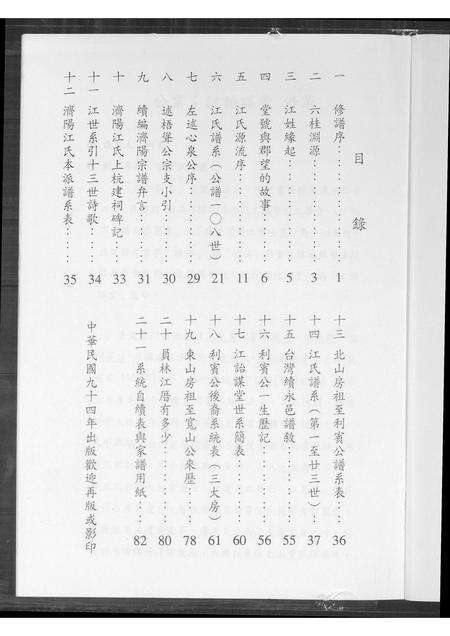 目錄
一 修譜序 1
二 六桂淵源 3
三 江姓緣起 5
四 堂號與郡望的故事 6
五 江氏源流序 11
六 江氏譜系(公譜一〇八世) 21
七 左述心泉公序 29
八 述梧聳公宗支小引 30
九 續編濟陽宗譜弁言 31
十 濟陽江氏上杭建祠碑記 33
十一 江世系引十三世詩歌 34
十二 濟陽江氏本派譜系表 35
十三 北山房祖至利賓公譜系表 36
十四 江氏譜系(第一至廿三世) 37
十五 台灣續永邑譜敘 55
十六 利賓公一生歷記 56
十七 江詒謀堂世系簡表 60
十八 利賓公後裔系統表(三大房) 61
十九 東山房祖至寬山公來歷 78
二十 員林江厝有多少 80
二十一 系統自續表與家譜用紙 82
中華民國九十四年出版歡迎再版或影印